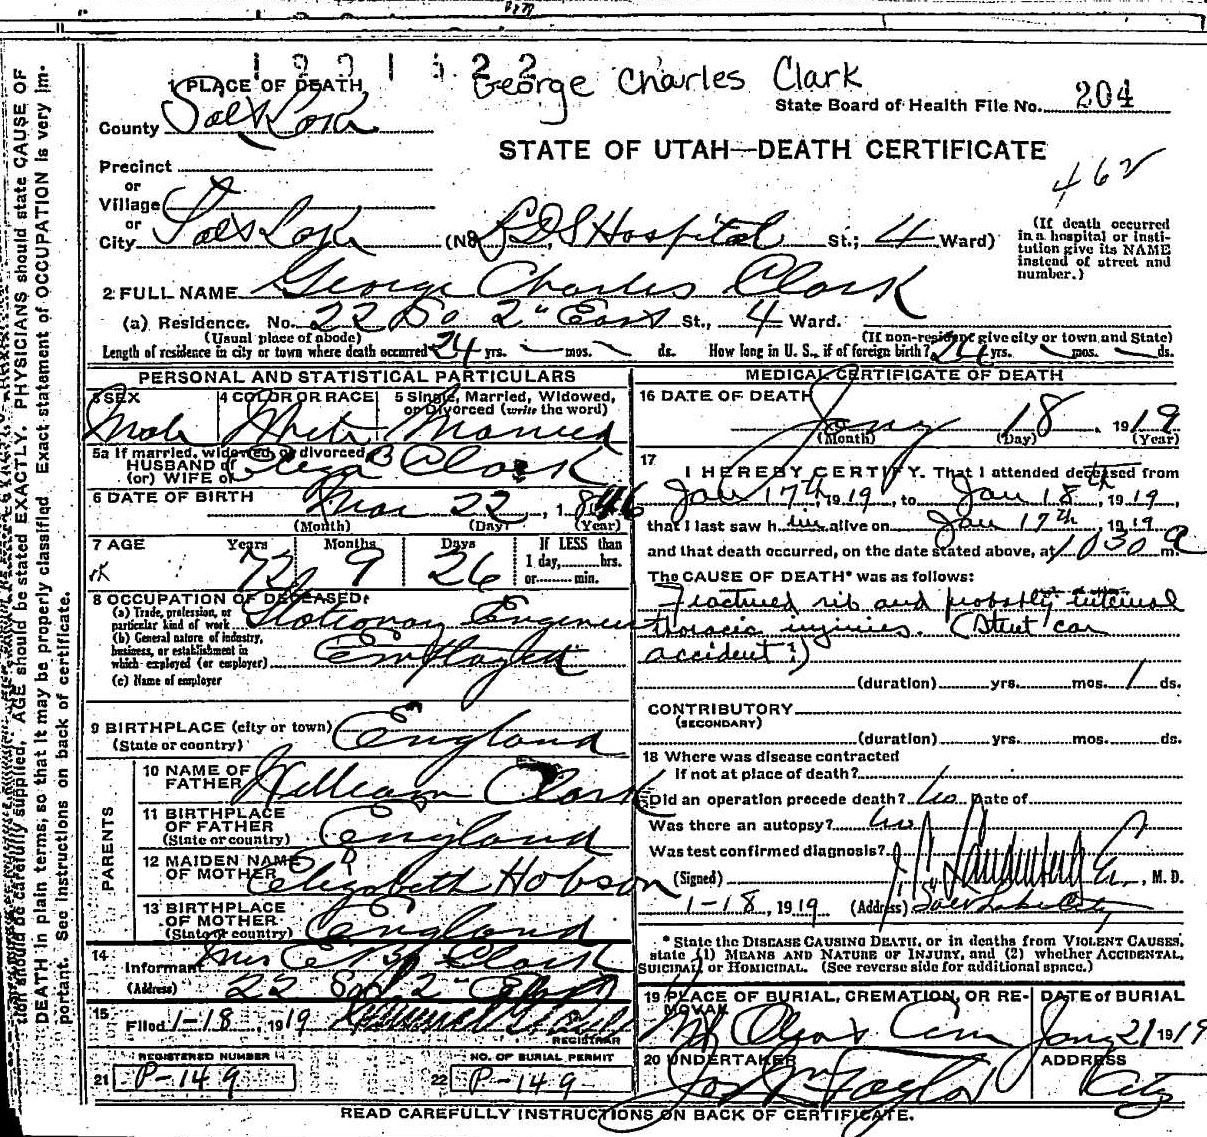 George Charles Clark
1 PLACE OF DEATH
State Board of Health File No. 204
County Salt Lake
STATE OF UTAH—DEATH CERTIFICATE
462
Precinct
or
Village
or
City Salt Lake (No. LDS Hospital St.; 4 Ward)
(If death occurred in a hospital or institution give its NAME instead of street and number.)
2 FULL NAME George Charles Clark
(a) Residence. No. 22 So 2" East St., 4 Ward.
(Usual place of abode) (If non-resident give city or town and State)
Length of residence in city or town where death occurred 24 yrs. — mos. — ds. How long in U. S., if of foreign birth? 24 yrs. — mos. — ds.
PERSONAL AND STATISTICAL PARTICULARS
3 SEX Male
4 COLOR OR RACE White
5 Single, Married, Widowed, or Divorced (write the word) Married
5a If married, widowed, or divorced
HUSBAND of
(or) WIFE of Eliza B Clark
6 DATE OF BIRTH Mar 22, 1846
(Month) (Day) (Year)
7 AGE Years 72 Months 9 Days 26 If LESS than 1 day, hrs. or min.
8 OCCUPATION OF DECEASED:
(a) Trade, profession, or particular kind of work Stationary Engineer
(b) General nature of industry, business, or establishment in which employed (or employer) Employed
(c) Name of employer
9 BIRTHPLACE (city or town)
(State or country) England
PARENTS
10 NAME OF FATHER William Clark
11 BIRTHPLACE OF FATHER
(State or country) England
12 MAIDEN NAME OF MOTHER Elizabeth Hobson
13 BIRTHPLACE OF MOTHER
(State or country) England
14 Informant Mrs E B Clark
(Address) 22 So 2" East
15 Filed 1-18, 1919
REGISTRAR
REGISTERED NUMBER
21 P-149
NO. OF BURIAL PERMIT
22 P-149
MEDICAL CERTIFICATE OF DEATH
16 DATE OF DEATH Jany 18, 1919
(Month) (Day) (Year)
17 I HEREBY CERTIFY, That I attended deceased from
Jan 17th, 1919, to Jan 18th, 1919,
that I last saw him alive on Jan 17th, 1919
and that death occurred, on the date stated above, at 1030 a m
The CAUSE OF DEATH* was as follows:
Fractured rib and probably internal
thoracic injuries. (Street car
accident)
(duration) yrs. mos. 1 ds.
CONTRIBUTORY
(SECONDARY)
(duration) yrs. mos. ds.
18 Where was disease contracted
if not at place of death?
Did an operation precede death? No Date of
Was there an autopsy? No
Was test confirmed diagnosis?
(Signed) , M. D.
1-18, 1919 (Address) Salt Lake City
* State the DISEASE CAUSING DEATH, or in deaths from VIOLENT CAUSES, state (1) MEANS AND NATURE OF INJURY, and (2) whether ACCIDENTAL, SUICIDAL, or HOMICIDAL. (See reverse side for additional space.)
19 PLACE OF BURIAL, CREMATION, OR REMOVAL Mt Olivet Cem
DATE of BURIAL Jany 21 1919
20 UNDERTAKER Jos Wm Taylor
ADDRESS City
READ CAREFULLY INSTRUCTIONS ON BACK OF CERTIFICATE.
should be carefully supplied. AGE should be stated EXACTLY. PHYSICIANS should state CAUSE OF
DEATH in plain terms, so that it may be properly classified. Exact statement of OCCUPATION is very im-
portant. See instructions on back of certificate.